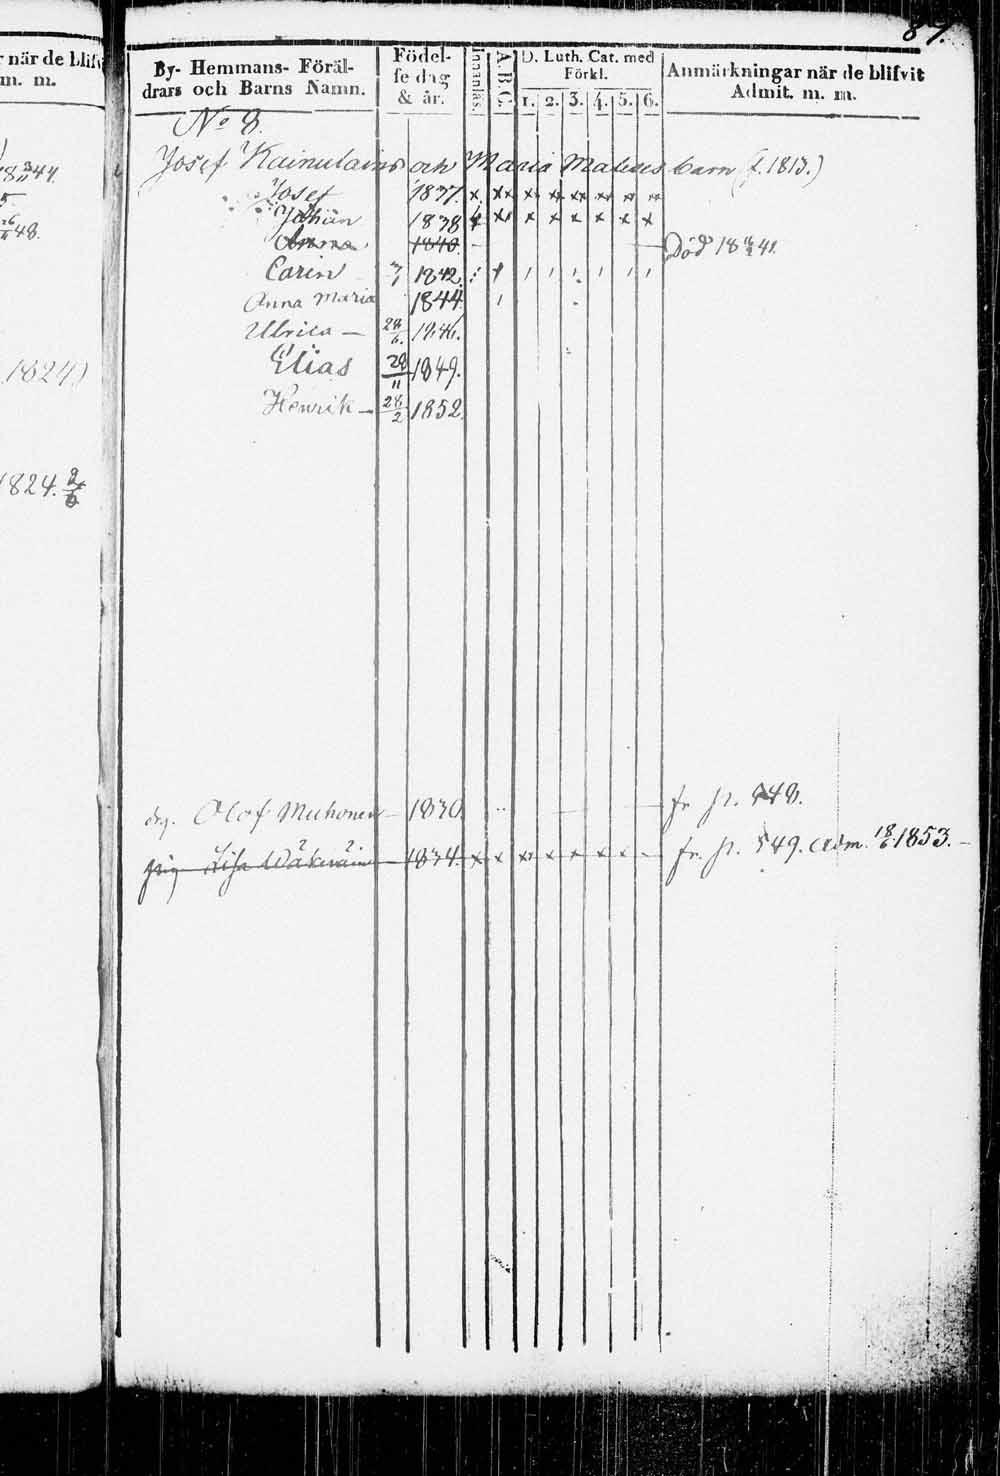 87.
r när de blifv
m. m.
44.
48.
1824)
1824. 2/6
By- Hemmans- Föräl-
drars och Barns Namn.
Födel-
se dag
& år.
Innanläs.
A. B. C.
D. Luth. Cat. med
Förkl.
1. 2. 3. 4. 5. 6.
Anmärkningar när de blifvit
Admit. m. m.
No 8.
Josef Kainulains och Maria barn (f. 1813.)
Josef 1837.
Johan 1838
Anna 1840. Död 18 41.
Carin 1842.
Anna Maria 1844
Ulrica — 28/6. 1846.
Elias 29/11 1849.
Henrik — 28/2 1852.
drg. Olof Muhonen — 1830. fr. p. 548.
pig Lisa Wäkeväin 1834. fr. p. 549. adm. 18/6 1853. —